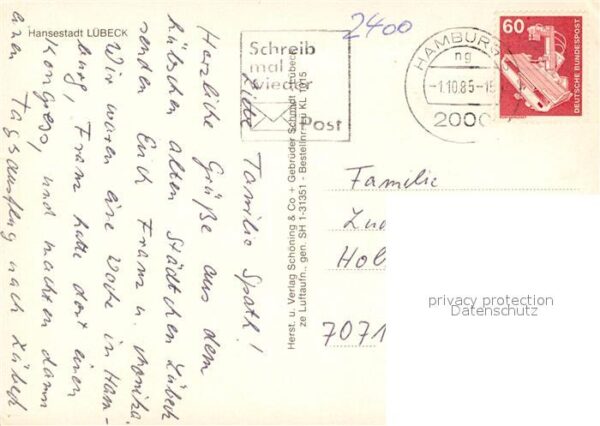 Hansestadt LÜBECK
2400
Schreib
mal
wieder
Post
HAMBURG
ng
-1.10.85-15
2000
60
DEUTSCHE BUNDESPOST
Liebe Familie Spath!
Herzliche Grüße aus dem
hübschen alten Städtchen Lübeck
senden Euch Franz u. Monika.
Wir waren eine Woche in Ham-
burg, Franz hatte dort einen
Kongress, und machten dann
einen Tagsausflug nach Lübeck.
Herst. u. Verlag Schöning & Co + Gebrüder Schmidt, Lübeck
ze Luftaufn., gen. SH 1-31351 - Bestellnr. Lü KL 1015
Familie
Hol
7071
privacy protection
Datenschutz